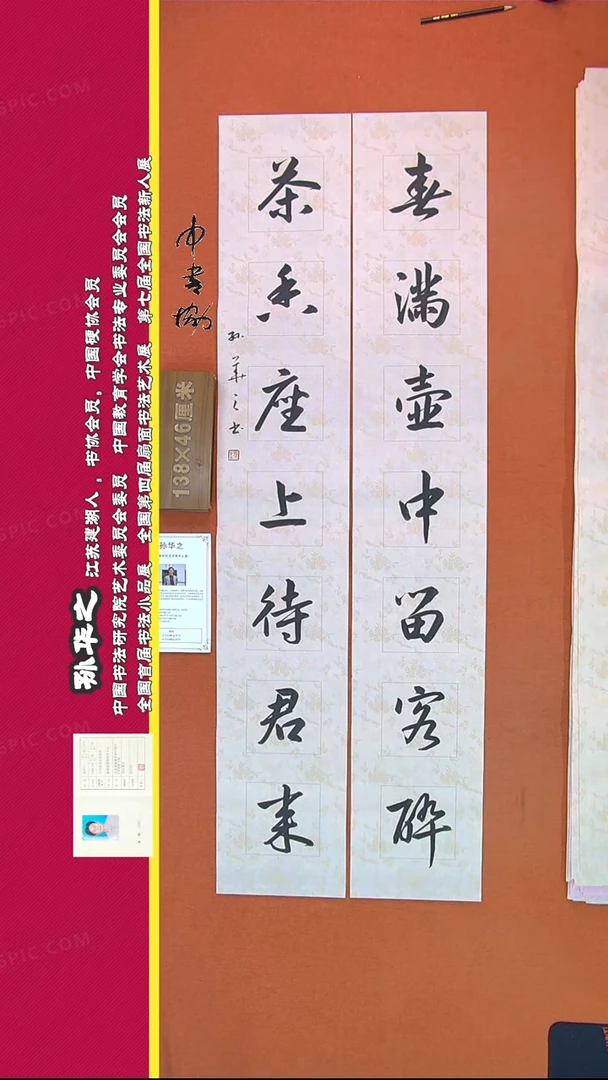 春满壶中留客醉
茶香座上待君来
孙華之书
中书协
138×46厘米
孙华之
孙华之 江苏建湖人，书协会员，中国硬协会员
中国书法研究院艺术委员会委员 中国教育学会书法专业委员会会员
全国首届书法小品展 全国第四届扇面书法艺术展 第七届全国书法新人展